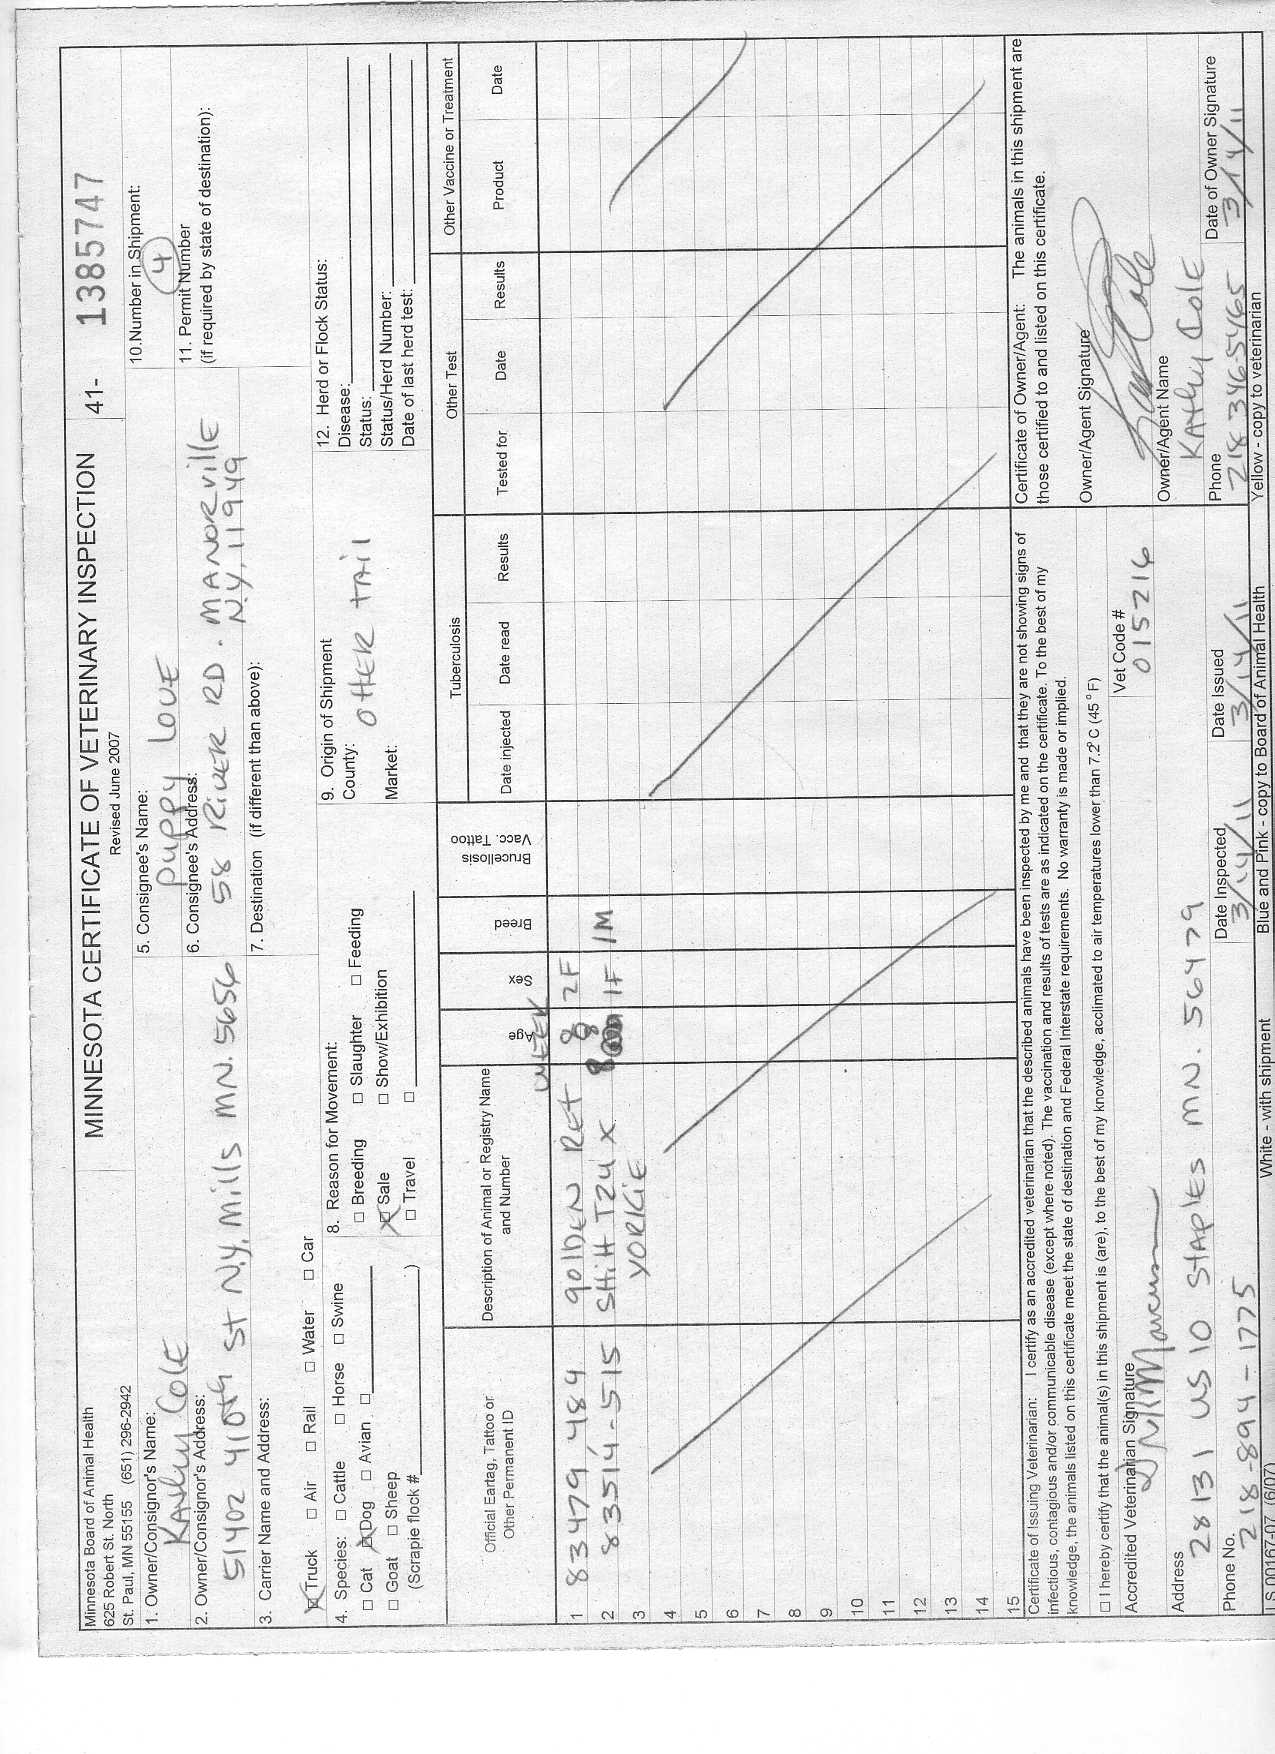 MINNESOTA CERTIFICATE OF VETERINARY INSPECTION 41- 1385747
Revised June 2007
Minnesota Board of Animal Health
625 Robert St. North
St. Paul, MN 55155 (651) 296-2942
1. Owner/Consignor's Name:
KAthy COlE
2. Owner/Consignor's Address:
51402 410th St N.Y. Mills MN. 5656
3. Carrier Name and Address:
☒ Truck ☐ Air ☐ Rail ☐ Water ☐ Car
4. Species: ☐ Cattle ☐ Horse ☐ Swine
☐ Cat ☒ Dog ☐ Avian ☐
☐ Goat ☐ Sheep
(Scrapie flock # )
5. Consignee's Name:
PUPPY LOVE
6. Consignee's Address:
58 RIVER RD. MANORVILLE
N.Y. 11949
7. Destination (if different than above):
8. Reason for Movement:
☐ Breeding ☐ Slaughter ☐ Feeding
☒ Sale ☐ Show/Exhibition
☐ Travel ☐
9. Origin of Shipment
County: OTTER TAIL
Market:
10.Number in Shipment:
4
11. Permit Number
(if required by state of destination):
12. Herd or Flock Status:
Disease:
Status:
Status/Herd Number:
Date of last herd test:
Official Eartag, Tattoo or Other Permanent ID
Description of Animal or Registry Name and Number
Age
Sex
Breed
Brucellosis Vacc. Tattoo
Tuberculosis
Date injected Date read Results
Other Test
Tested for Date Results
Other Vaccine or Treatment
Product Date
WEEK
1 83479 484 GOLDEN RET 8 2F
2 83514-515 SHIH TZU X 8 1F 1M
3 YORKIE
4
5
6
7
8
9
10
11
12
13
14
15
Certificate of Issuing Veterinarian: I certify as an accredited veterinarian that the described animals have been inspected by me and that they are not showing signs of
infectious, contagious and/or communicable disease (except where noted). The vaccination and results of tests are as indicated on the certificate. To the best of my
knowledge, the animals listed on this certificate meet the state of destination and Federal Interstate requirements. No warranty is made or implied.
☐ I hereby certify that the animal(s) in this shipment is (are), to the best of my knowledge, acclimated to air temperatures lower than 7.2° C (45° F)
Accredited Veterinarian Signature
Vet Code #
015216
Address
28131 US 10 STAPLES MN. 56479
Phone No.
218-894-1775
Date Inspected
3/14/11
Date Issued
3/14/11
Certificate of Owner/Agent: The animals in this shipment are
those certified to and listed on this certificate.
Owner/Agent Signature
Owner/Agent Name
KAthy COlE
Phone
218 346 5465
Date of Owner Signature
3/14/11
LS 00167-07 (6/07) White - with shipment Blue and Pink - copy to Board of Animal Health Yellow - copy to veterinarian